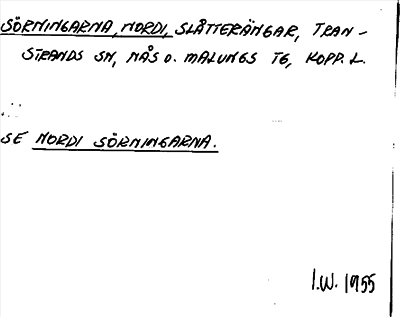 SÖRNINGARNA, NORDI, SLÅTTERÄNGAR, TRAN-
STRANDS SN, NÅS O. MALUNGS TG, KOPP. L.
SE NORDI SÖRNINGARNA.
I.W. 1955